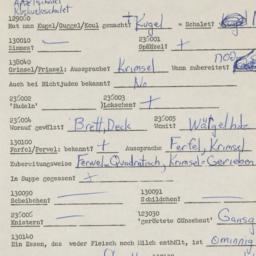 129060
Hat man Kugel/Guggel/Koul gemacht? + Kugel = Schalet?
130010 236001
Zimmes? Spätzel? +
138040
Grimsel/Frimsel: Aussprache? Krimsel Wann zubereitet?
Auch bei Nichtjuden bekannt? No
236002 236003
'Nudeln' Lokschen? +
236004 236005
Worauf gewälzt? Brett, Deck Womit?
130100
Farfel/Ferwel: bekannt? + Aussprache Ferfel, Krimsel
Zubereitungsweise Ferwel-Quadratisch, Krimsel-Gerieben
In Suppe gegessen? +
130090 130091
Scheibchen? Schildchen?
236006 123030
Knistern? 'geröstete Gänsehaut' Gans
130140
Ein Essen, das weder Fleisch noch Milch enthält, ist